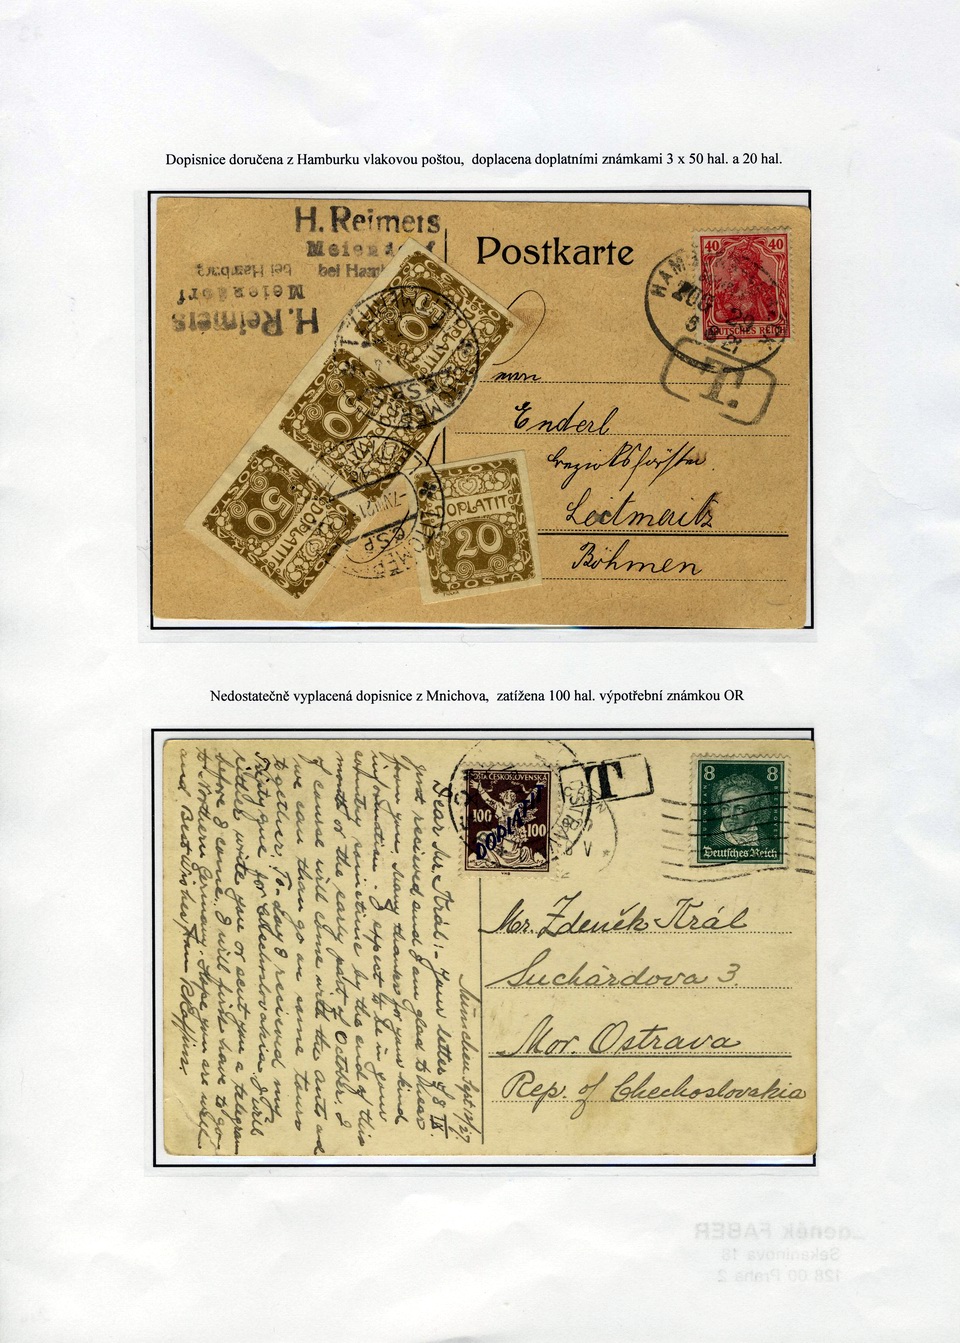 Dopisnice doručena z Hamburku vlakovou poštou, doplacena doplatními známkami 3 x 50 hal. a 20 hal.
H. Reimers
Meiendorf
bei Hamburg
H. Reimers
Meiendorf
bei Hamburg
Postkarte
40 40
DEUTSCHES REICH
T.
50
DOPLATIT
50
50
DOPLATIT
DOPLATIT
20
POSTA
Č.S.P.
-7.VIII.21
Enderl
Bezirksförster
Leitmeritz
Böhmen
Nedostatečně vyplacená dopisnice z Mnichova, zatížena 100 hal. výpotřební známkou OR
POŠTA ČESKOSLOVENSKÁ
100 100
DOPLATIT
T
8 8
Deutsches Reich
München Sept 12/27.
Dear Mr. Král:- Your letter of 8 IX.
just received and I am glad to hear
from you. Many thanks for your kind
information. I expect to be in your
country sometime by the end of this
month or the early part of October. I
of course will come with the auto and
we can then go on some tours
together. To-day I received my
for Czechoslovakia. I will
either write you or sent you a telegram
before I come. I will first have to go
to Northern Germany. Hope you are well
and Best Wishes from
Mr. Zdeněk Král
Suchárdova 3.
Mor. Ostrava
Rep. of Chechoslovakia
Zdeněk FABER
Sekaninova 16
128 00 Praha 2